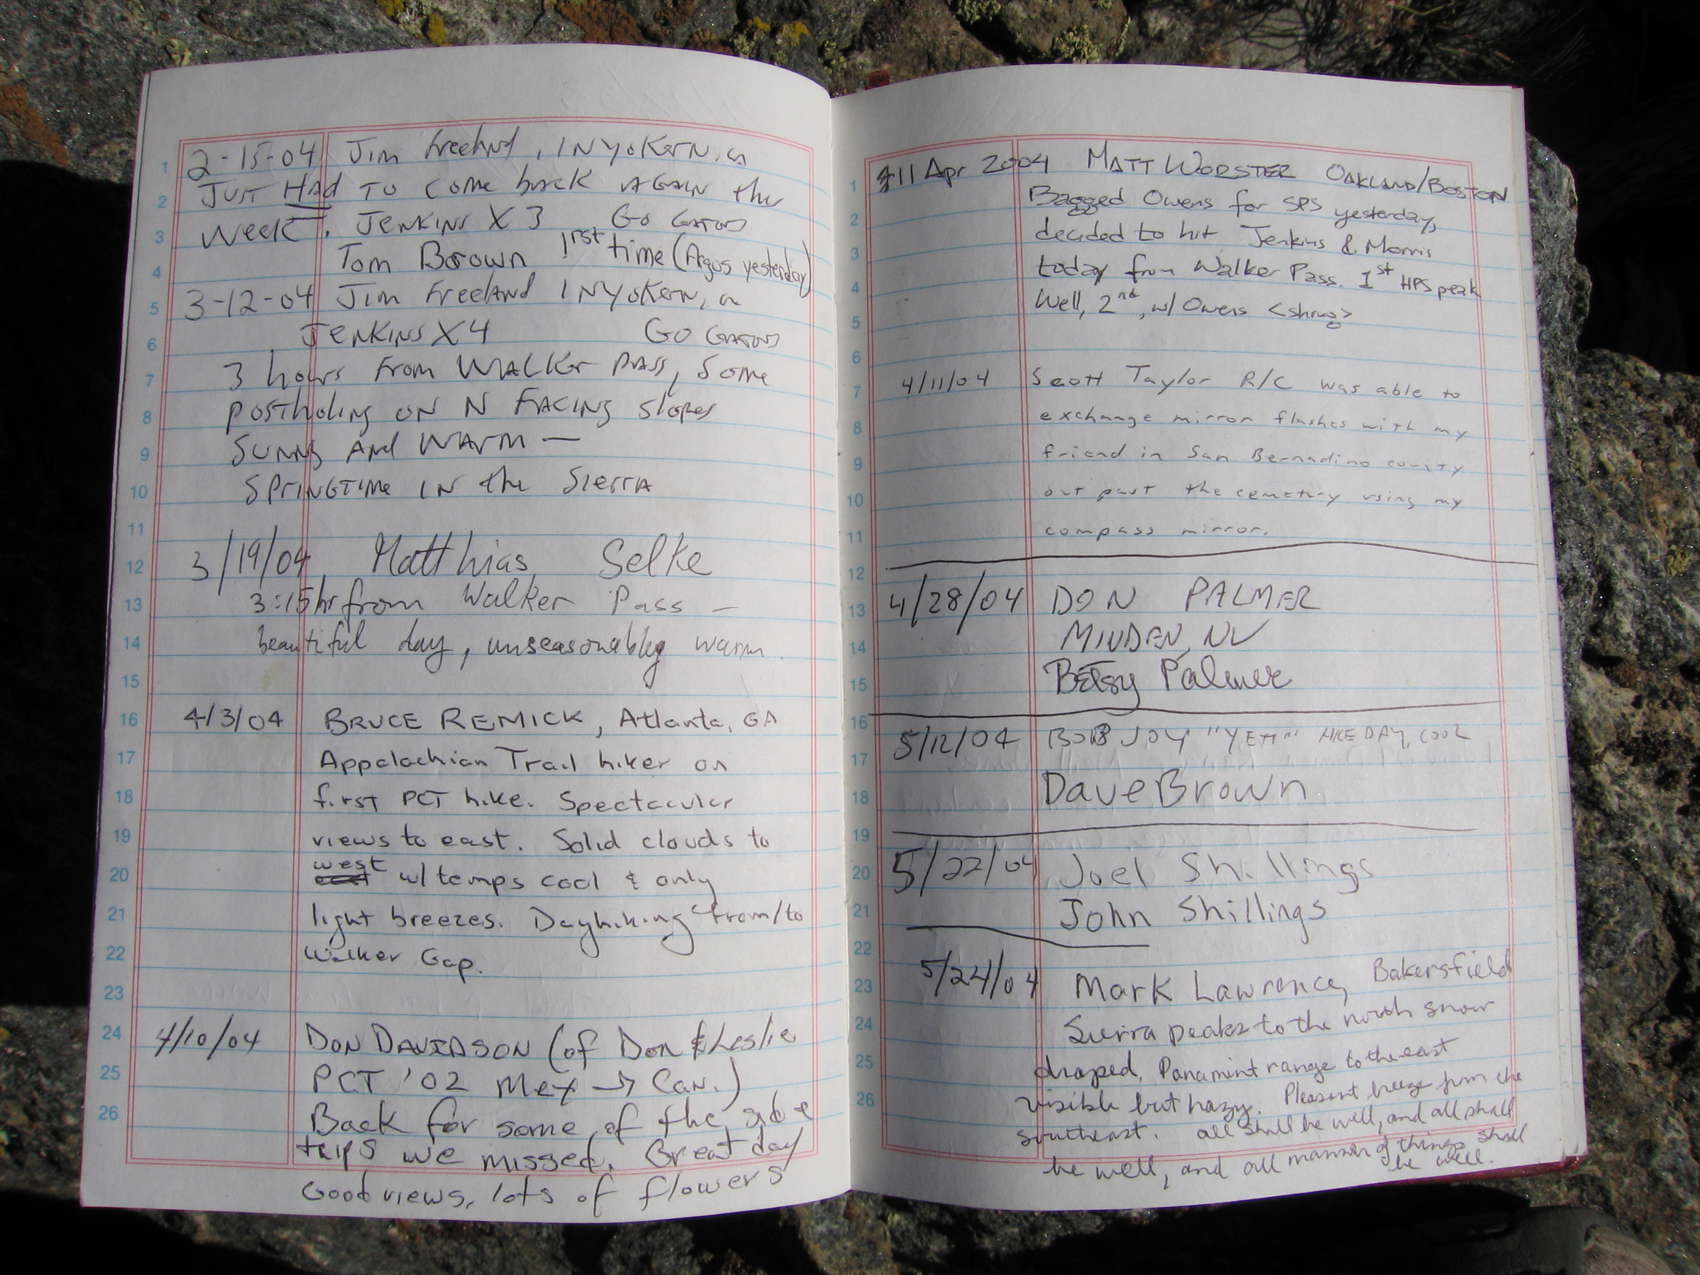 2-15-04 Jim Freeland, INYOKERN, CA
JUST HAD TO COME back AGAIN the
WEEK. JENKINS X 3 GO GATORS
Tom Brown 1rst time (Argus yesterday)
3-12-04 Jim Freeland INYOKERN, CA
JENKINS X4 GO GATORS
3 hours From WALKER PASS, Some
postholing ON N FACING slopes
SUNNY And WARM —
SPRINGTIME IN the SIERRA
3/19/04 Matthias Selke
3:15hr from Walker Pass —
beautiful day, unseasonably warm.
4/3/04 BRUCE REMICK, Atlanta, GA
Appalachian Trail hiker on
first PCT hike. Spectacular
views to east. Solid clouds to
west w/ temps cool & only
light breezes. Dayhiking from/to
Walker Gap.
4/10/04 DON DAVIDSON (of Don & Leslie
PCT '02 Mex → Can.)
Back for some of the side
trips we missed. Great day
Good views, lots of flowers
1
2
3
4
5
6
7
8
9
10
11
12
13
14
15
16
17
18
19
20
21
22
23
24
25
26
11 Apr 2004 MATT WORSTER OAKLAND/BOSTON
Bagged Owens for SPS yesterday,
decided to hit Jenkins & Morris
today from Walker Pass. 1st HPS peak
Well, 2nd, w/ Owens <shrug>
4/11/04 Scott Taylor R/C was able to
exchange mirror flashes with my
friend in San Bernadino county
out past the cemetery using my
compass mirror.
4/28/04 DON PALMER
MINDEN, NV
Betsy Palmer
5/12/04 BOB JOY "YETI" NICE DAY, COOL
Dave Brown
5/22/04 Joel Shillings
John Shillings
5/24/04 Mark Lawrence, Bakersfield
Sierra peaks to the north snow
draped, Panamint range to the east
visible but hazy. Pleasant breeze from the
southeast. All shall be well, and all shall
be well, and all manner of things shall
be well.
1
2
3
4
5
6
7
8
9
10
11
12
13
14
15
16
17
18
19
20
21
22
23
24
25
26